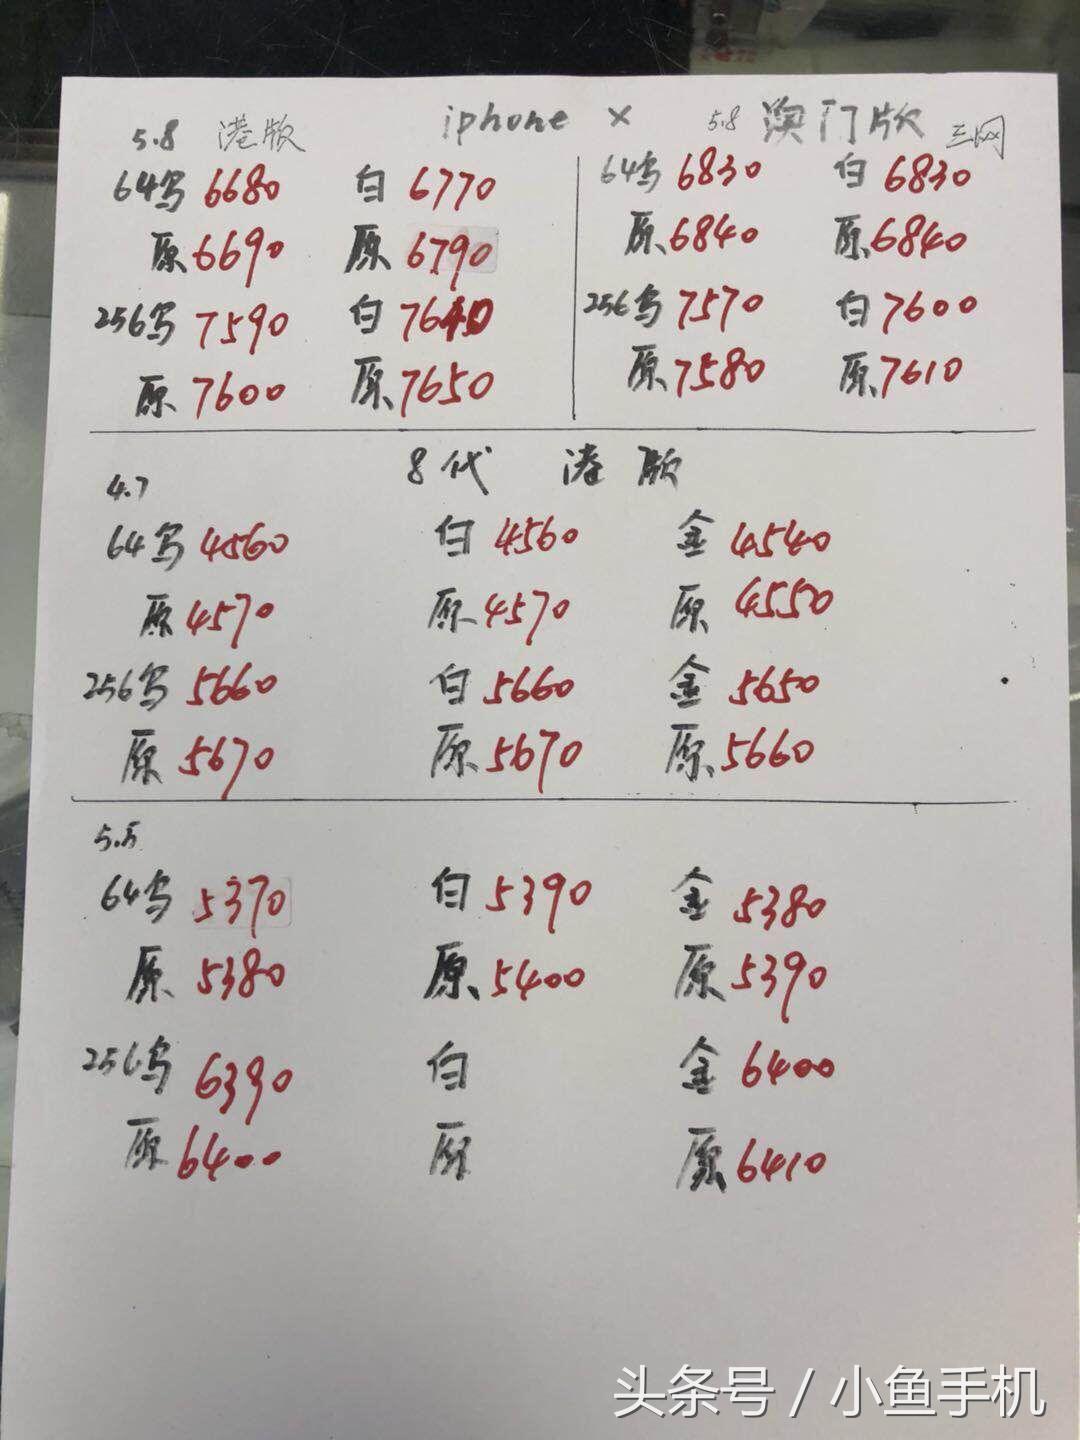 5.8 港版 iphone X 5.8 澳门版 三网
64乌 6680 白 6770 64乌 6830 白 6830
原 6690 原 6790 原 6840 原 6840
256乌 7590 白 7640 256乌 7570 白 7600
原 7600 原 7650 原 7580 原 7610
8代 港版
4.7
64乌 4560 白 4560 金 4540
原 4570 原 4570 原 4550
256乌 5660 白 5660 金 5650
原 5670 原 5670 原 5660
5.5
64乌 5370 白 5390 金 5380
原 5380 原 5400 原 5390
256乌 6390 白 金 6400
原 6400 原 原 6410
头条号 / 小鱼手机